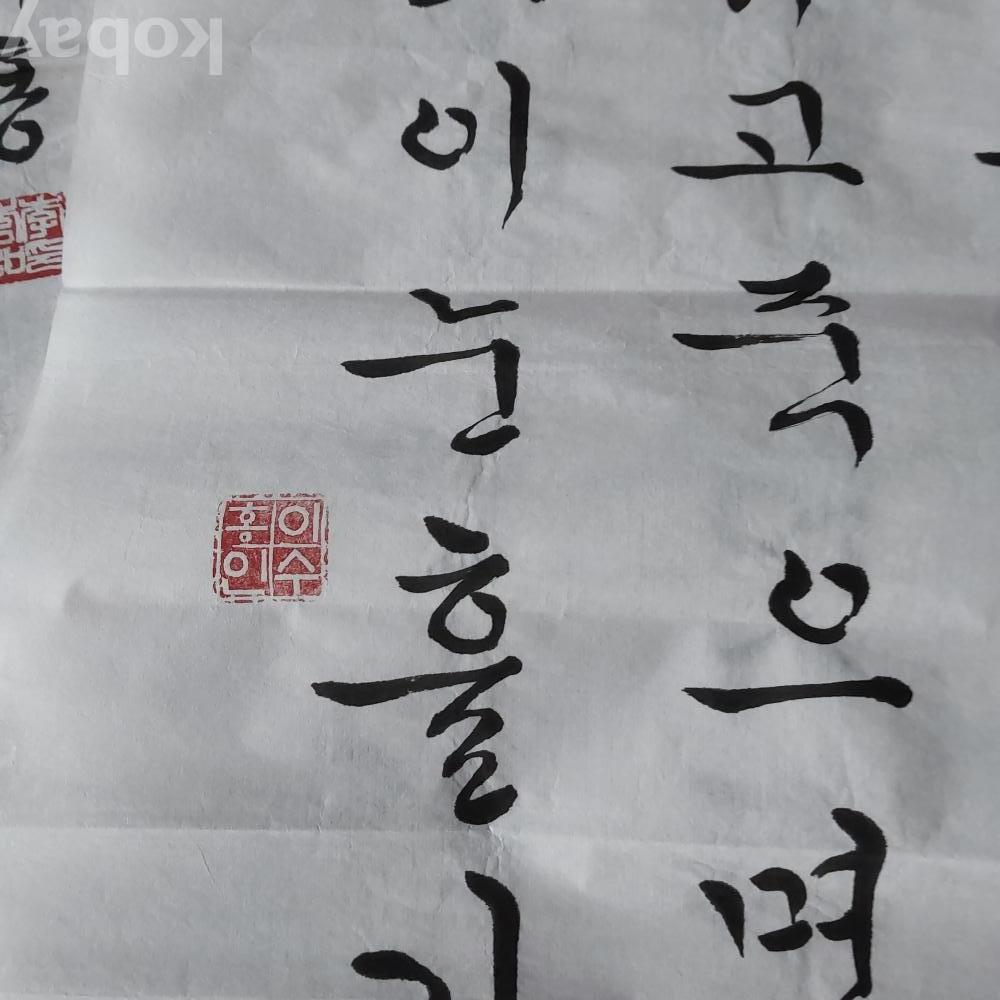 고죽으며
이눈흘
이수
홍인
kobay